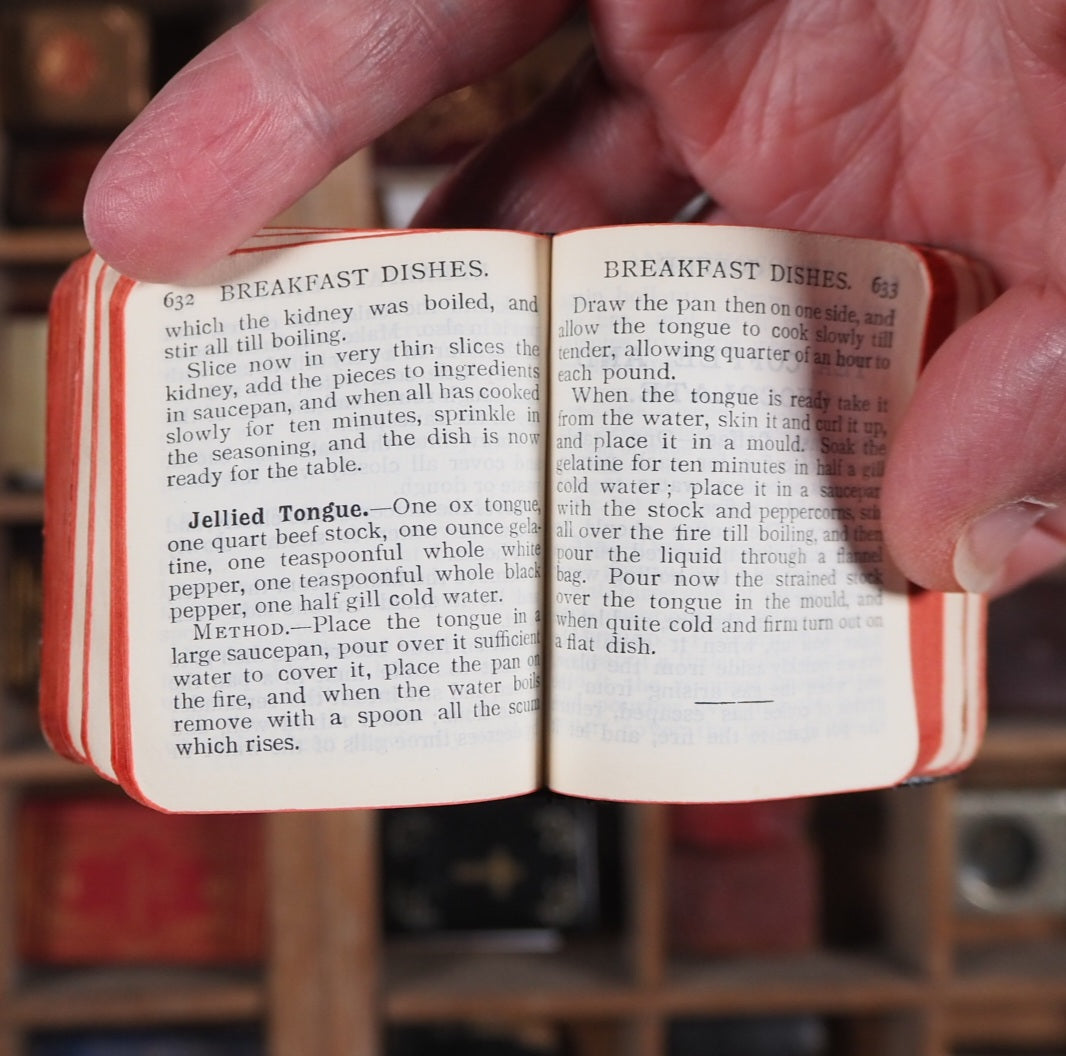 632 BREAKFAST DISHES.
which the kidney was boiled, and
stir all till boiling.
Slice now in very thin slices the
kidney, add the pieces to ingredients
in saucepan, and when all has cooked
slowly for ten minutes, sprinkle in
the seasoning, and the dish is now
ready for the table.
Jellied Tongue.—One ox tongue,
one quart beef stock, one ounce gela-
tine, one teaspoonful whole white
pepper, one teaspoonful whole black
pepper, one half gill cold water.
METHOD.—Place the tongue in a
large saucepan, pour over it sufficient
water to cover it, place the pan on
the fire, and when the water boils
remove with a spoon all the scum
which rises.
BREAKFAST DISHES. 633
Draw the pan then on one side, and
allow the tongue to cook slowly till
tender, allowing quarter of an hour to
each pound.
When the tongue is ready take it
from the water, skin it and curl it up,
and place it in a mould. Soak the
gelatine for ten minutes in half a gill
cold water; place it in a saucepan
with the stock and peppercorns, stir
all over the fire till boiling, and then
pour the liquid through a flannel
bag. Pour now the strained stock
over the tongue in the mould, and
when quite cold and firm turn out on
a flat dish.